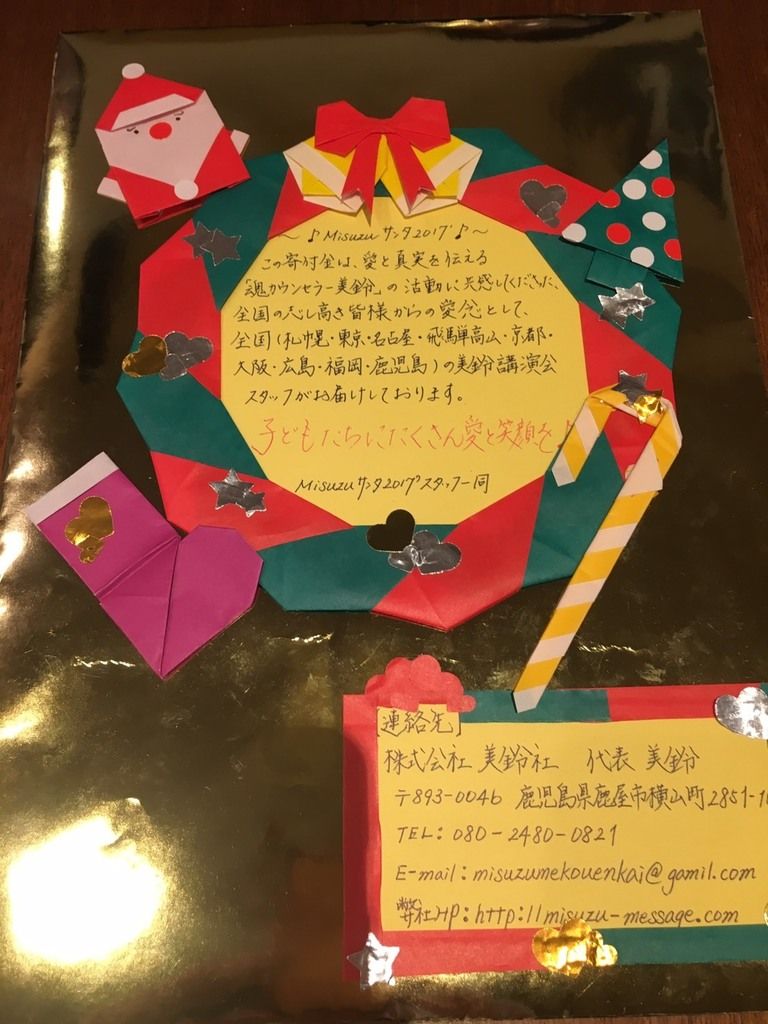 ～♪Misuzuサンタ2017'♪～
この寄付金は、愛と真実を伝える
「魂カウンセラー美鈴」の活動に共感してくださった、
全国の志し高き皆様からの愛念として、
全国(札幌・東京・名古屋・飛騨高山・京都・
大阪・広島・福岡・鹿児島)の美鈴講演会
スタッフがお届けしております。
子どもたちにたくさん愛と笑顔を♪
Misuzuサンタ2017'スタッフ一同
[連絡先]
株式会社 美鈴社 代表 美鈴
〒893-0046 鹿児島県鹿屋市横山町2851-1
TEL: 080-2480-0821
E-mail: misuzunekouenkai@gamil.com
弊社HP: http://misuzu-message.com